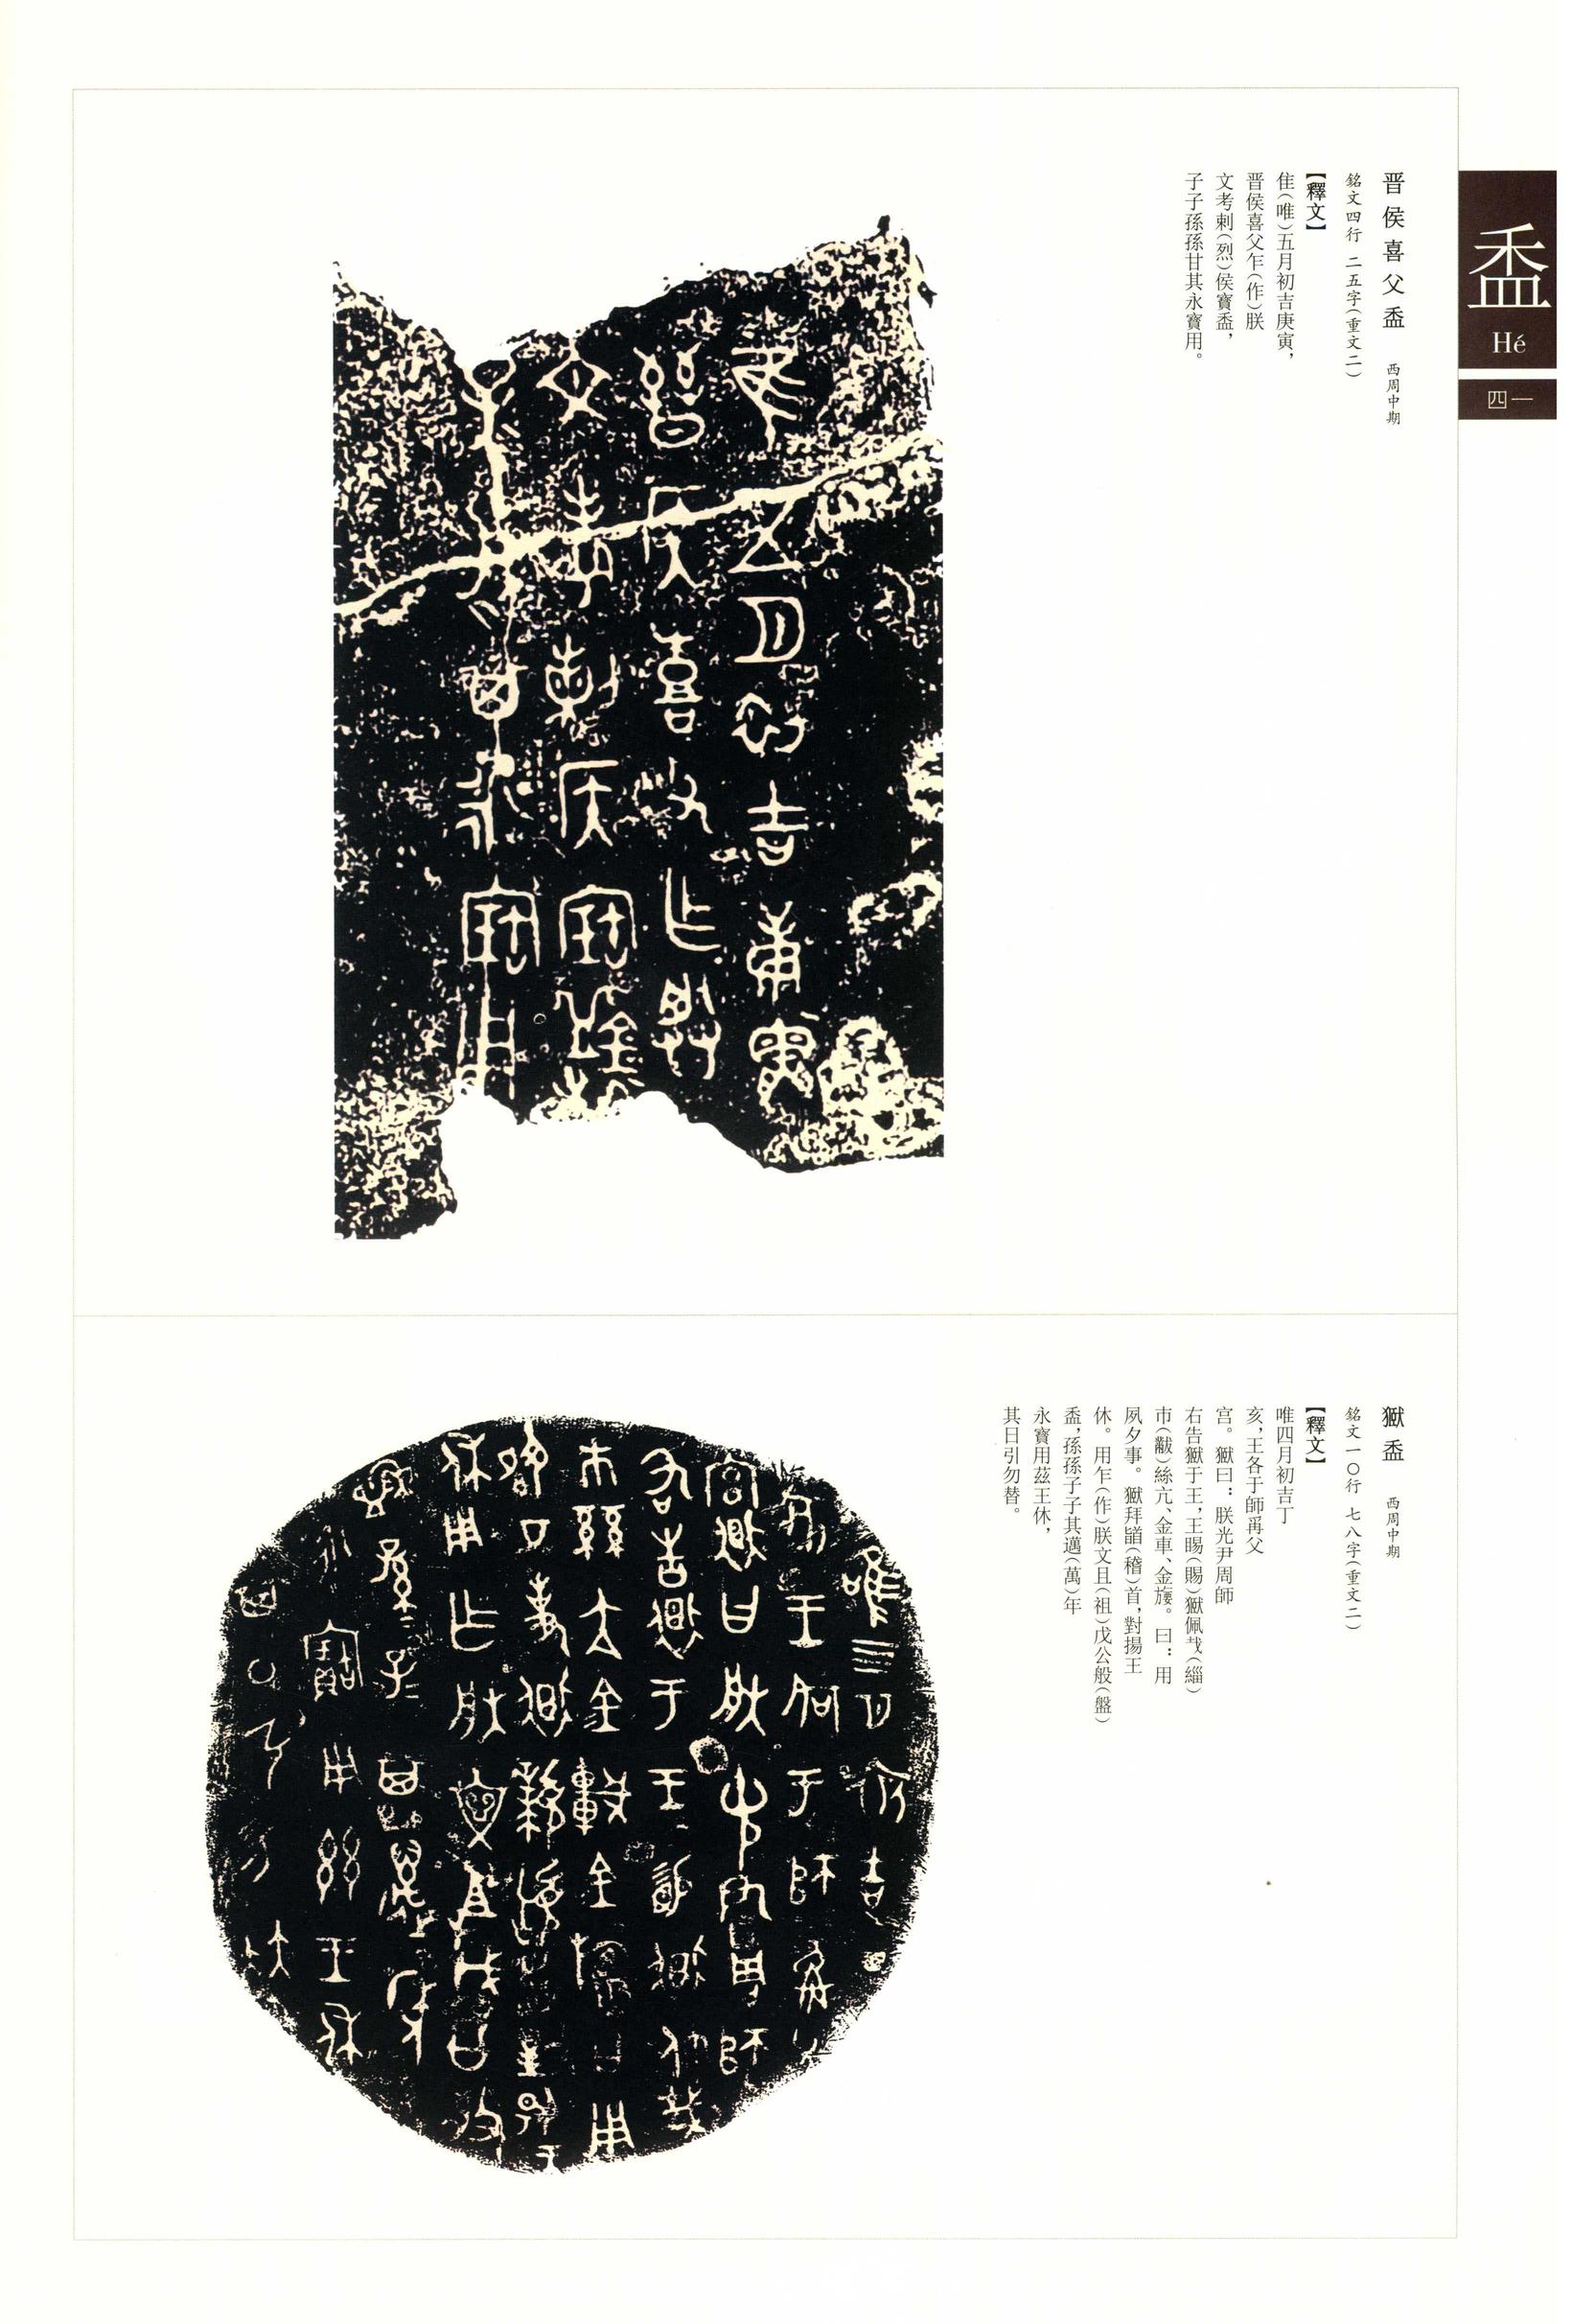 盉
Hé
四一
晋侯喜父盉 西周中期
銘文四行 二五字（重文二）
【釋文】
隹（唯）五月初吉庚寅，
晋侯喜父乍（作）朕
文考剌（烈）侯寶盉，
子子孫孫甘其永寶用。
獄盉 西周中期
銘文一〇行 七八字（重文二）
【釋文】
唯四月初吉丁
亥，王各于師爯父
宫。獄曰：朕光尹周師
右告獄于王，王賜（賜）獄佩𢦏（緇）
巿（韍）絲亢、金車、金旞。曰：用
夙夕事。獄拜䭫（稽）首，對揚王
休。用乍（作）朕文且（祖）戊公般（盤）
盉，孫孫子子其邁（萬）年
永寶用茲王休，
其日引勿替。